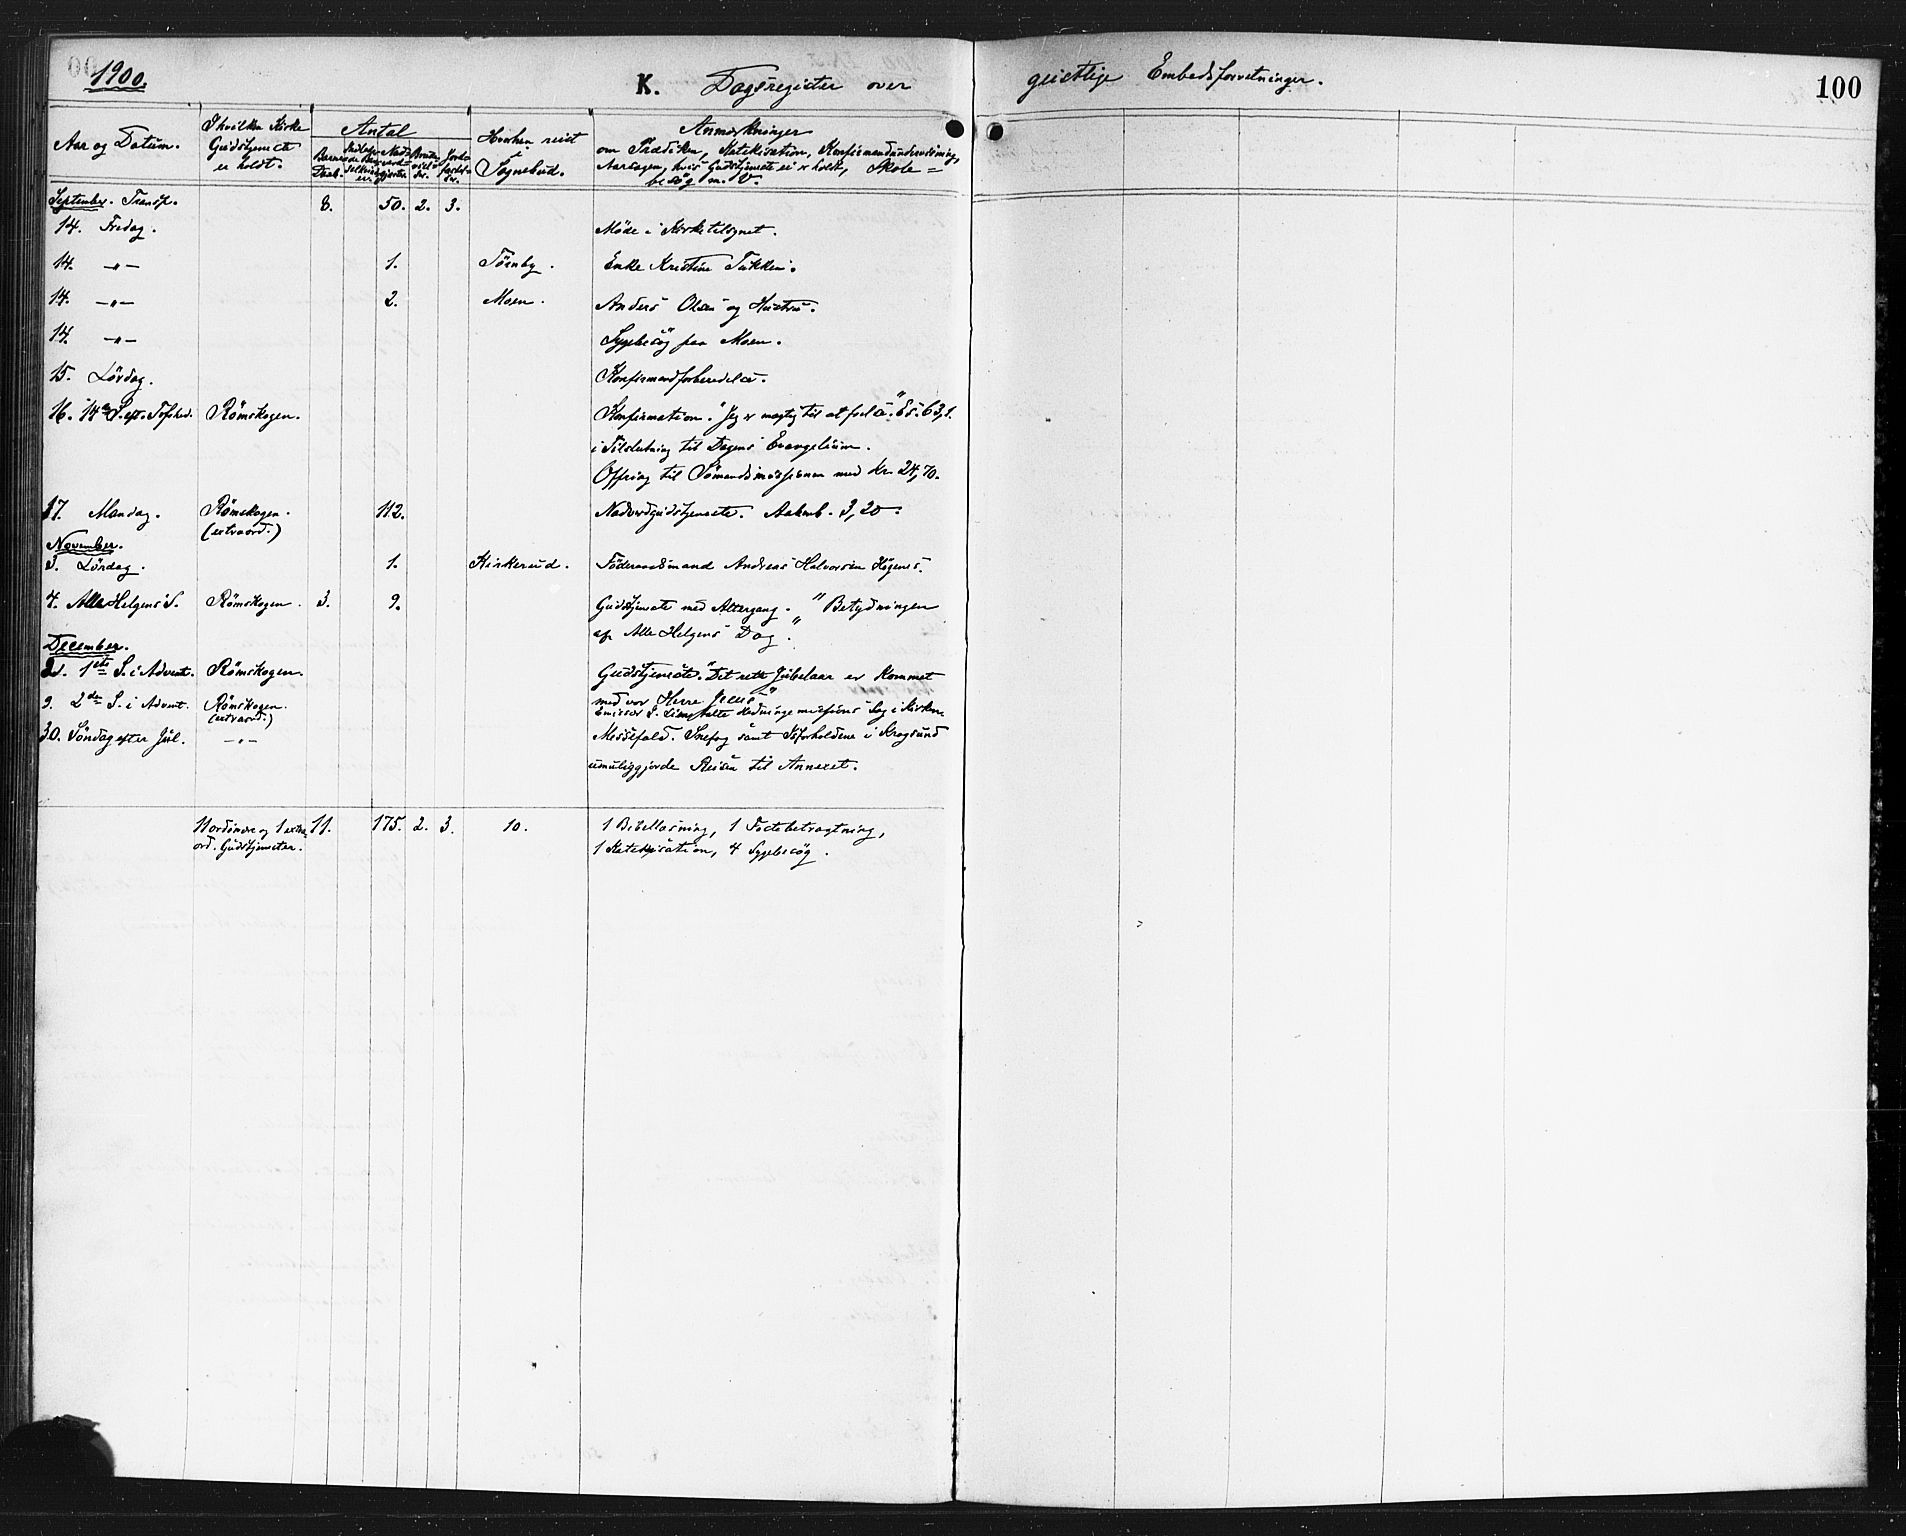 1900.
K. Dagsregister over geistlige Embedsforretninger.
100
Aar og Datum.
I hvilken Kirke Gudstjeneste er holdt.
Antal
Barnedaab.
Hvorhen reist i Sognebud.
Anmærkninger
om Prædiken, Katekisation, Konfirmandundervisning,
Aarsagen, hvis Gudstjeneste ei er holdt, Skole=
besøg m. V.
September. Transp. 8. 50. 2. 3.
14. Fredag. Møde i Kirketilsynet.
14. —"— 1. Törnby. Enke Kristine
14. —"— 2. Moen. Anders Olsen og Hustru.
14. —"— Sygebesög paa Moen.
15. Lördag. Konfirmandforberedelse.
16. 14de S. eft. Trefhed. Römskogen. Konfirmation. "Jeg er mægtig til at frelse." Es. 63,1.
i Tilslutning til Dagens Evangelium.
Offring til Sömandsmissionen med Kr. 24,70.
17. Mandag. Römskogen. 112. Nadverdgudstjeneste. 3,20.
(extraord.)
November.
3. Lördag. 1. Kirkerud. Föderaadsmand Andreas Halvorsen
4. Alle Helgens S. Römskogen. 3. 9. Gudstjeneste med Altergang. "Betydningen
af Alle Helgens Dag."
December.
2. 1ste S. i Advent. Römskogen. Gudstjeneste. "Det rette Jubelaar er kommet
med vor Herre Jesus"
9. 2den S. i Advent. Römskogen. Emissær S. talte Hedningemissions Sag i Kirken.
(extraord.)
30. Söndag efter Jul. —"— Messefald. Snefog samt Isforholdene i Krogsund
umuliggjorde Reisen til Annexet.
11 ordinære og 1 extra- 11. 175. 2. 3. 10. 1 Bibellæsning, 1 Fastebetragtning,
ord. Gudstjenester. 1 Katekisation, 4 Sygebesög.